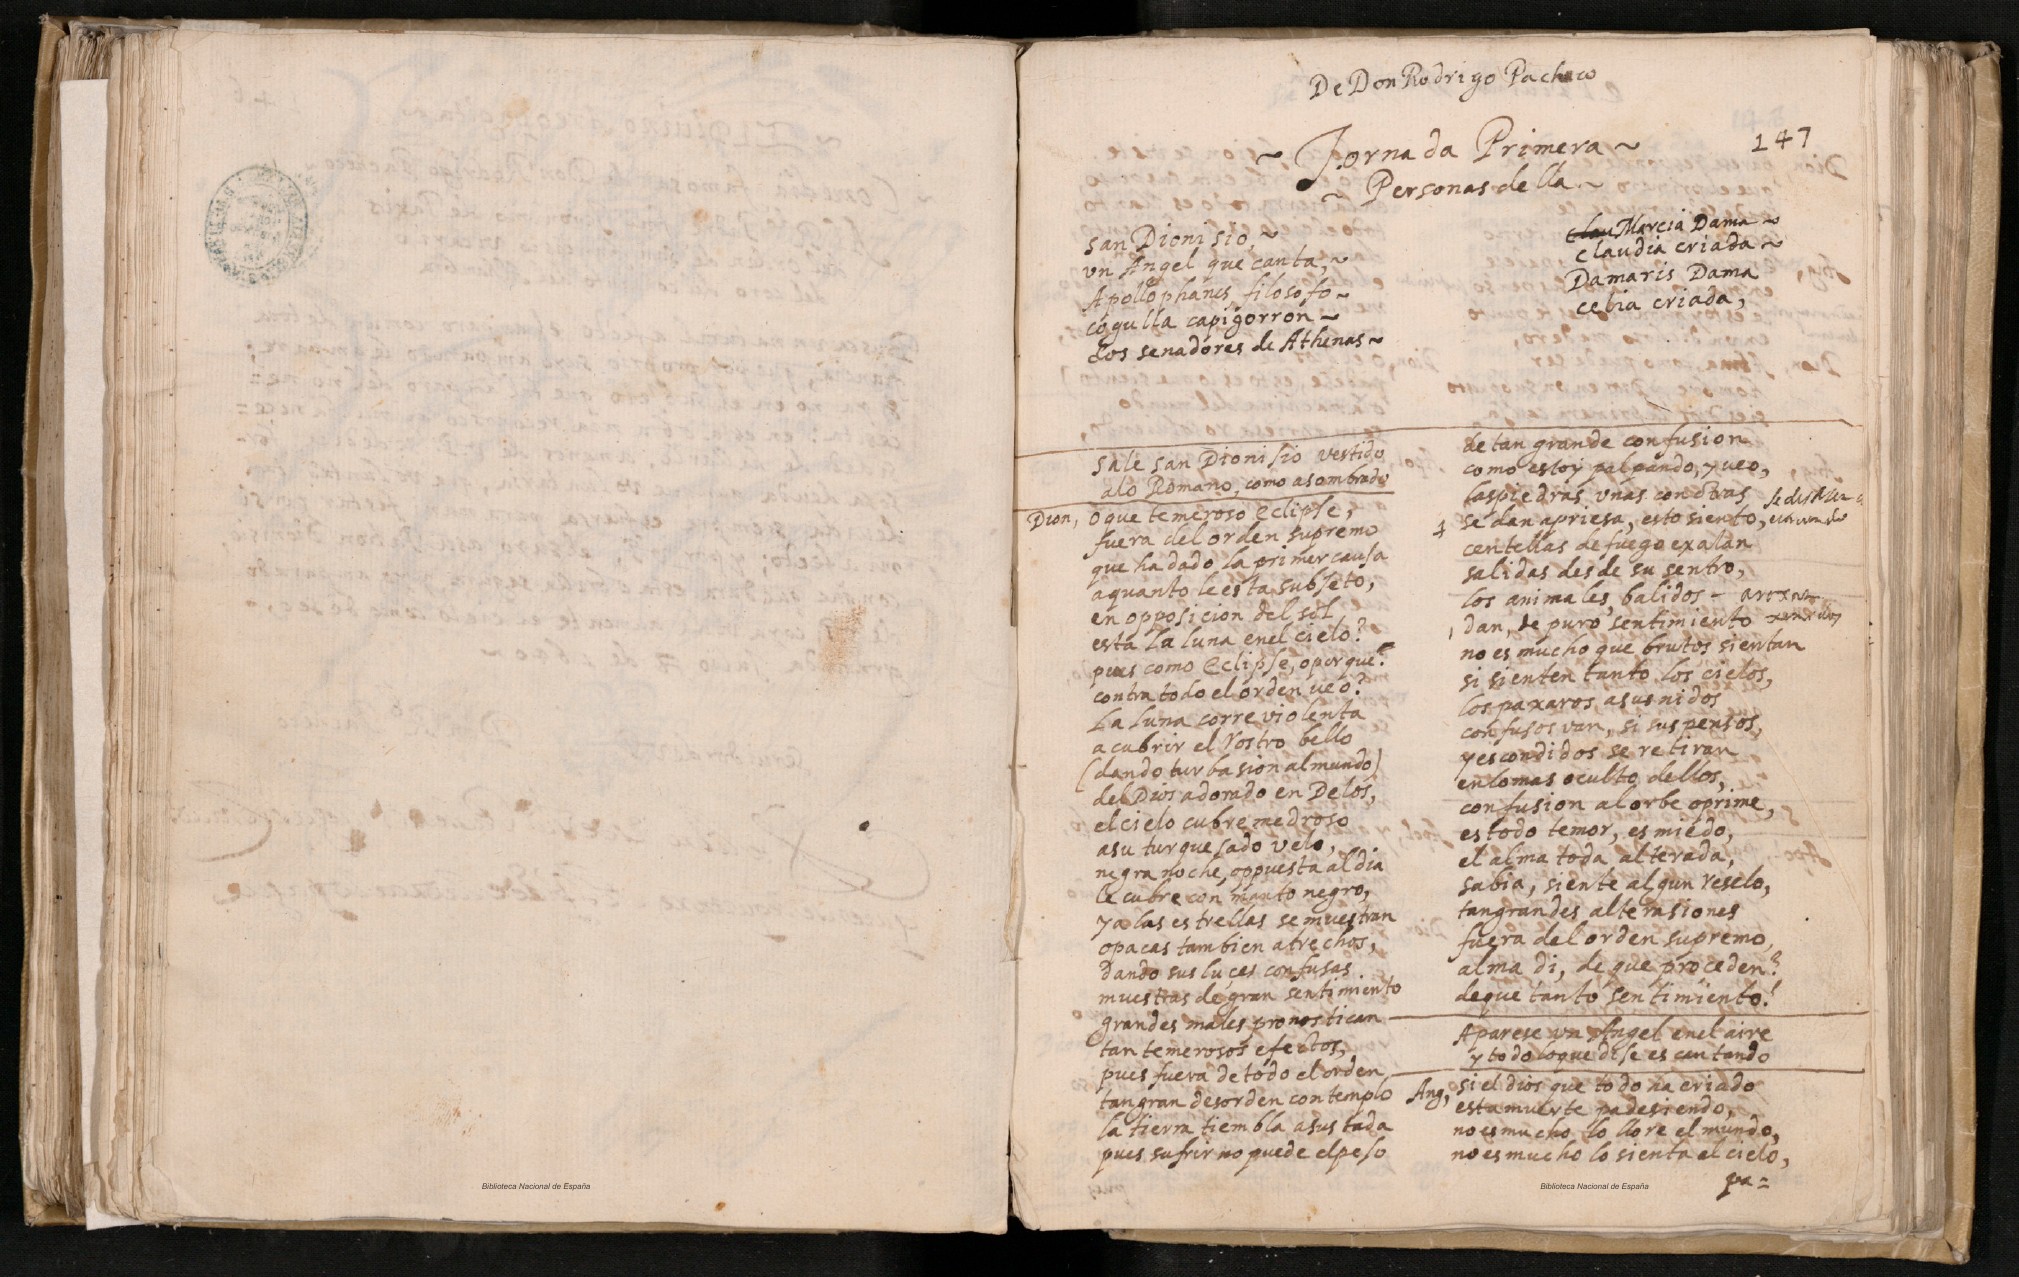 De Don Rodrigo Pacheco
147
~ Jornada Primera ~
~ Personas della ~
san Dionisio, ~
vn Angel que canta, ~
Apollophanes filosofo ~
cogulla capigorron ~
dos senadores de Athenas ~
clau Marcia Dama ~
claudia criada ~
Damaris Dama
celia criada,
sale san Dionisio vestido
alo Romano, como asombrado
Dion, o que temeroso eclipse,
fuera del orden supremo
que ha dado la primer causa
aquanto le esta subjeto,
en opposicion del sol
esta la luna enel cielo?
pues como eclipse, oporque?
contra todo el orden veo?
La luna corre violenta
acubrir el Rostro bello
(dando turbasion almundo)
del Dios adorado en Delos,
el cielo cubre medroso
asu turquesado velo,
negra noche, oppuesta al dia
le cubre con manto negro,
ya las estrellas se muestran
opacas tambien atrechos,
dando sus luçes confusas.
muestras de gran sentimiento
grandes males pronostican
tan temerosos efectos,
pues fuera de todo el orden
tangran desorden contemplo
la tierra tiembla asustada
pues sufrir no puede elpeso
de tan grande confusion
como estoy palpando, y veo,
las piedras vnas con otras
se dan apriesa, esto siento,
centellas de fuego exalan
salidas desde su sentro,
los animales, balidos -
dan, de puro sentimiento
no es mucho que brutos sientan
si sienten tanto los cielos,
los paxaros asus nidos
confusos van, si suspensos,
y escondidos se retiran
enlomas oculto dellos,
confusion al orbe oprime,
es todo temor, es miedo,
el alma toda alterada,
sabia, siente algun reselo,
tangrandes alterasiones
fuera del orden supremo,
alma di, de que proceden?
deque tanto sentimiento!
Aparese vn Angel enel aire
y todo loque dise es cantando
Ang, si el dios que todo ha criado
esta muerte padesiendo,
no es mucho llo llore el mundo,
no es mucho lo sienta el cielo,
pa=
Biblioteca Nacional de España
Biblioteca Nacional de España